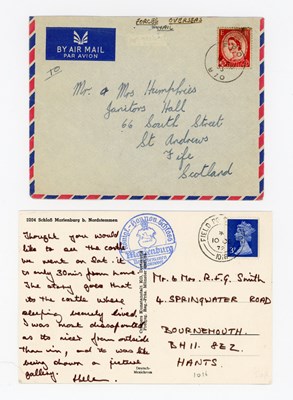 FORCES OVERSEAS
BY AIR MAIL
PAR AVION
TO
Mr & Mrs Humphries
Janitors Hall
66 South Street
St Andrews
Fife
Scotland
2304 Schloß Marienburg b. Nordstemmen
Thought you would
like to see the castle
we went on Sat. it
is only 30 mins from home
The story goes that
its the castle where
sleeping beauty lived.
I was most disappointed
as its nicer from outside
than in, and was like
being shown a picture
gallery.
Helen
Marienburg
FIELD POST
Mr & Mrs. R.F.G. Smith
4. SPRINGWATER ROAD
BOURNEMOUTH.
BH11 8EZ.
HANTS.